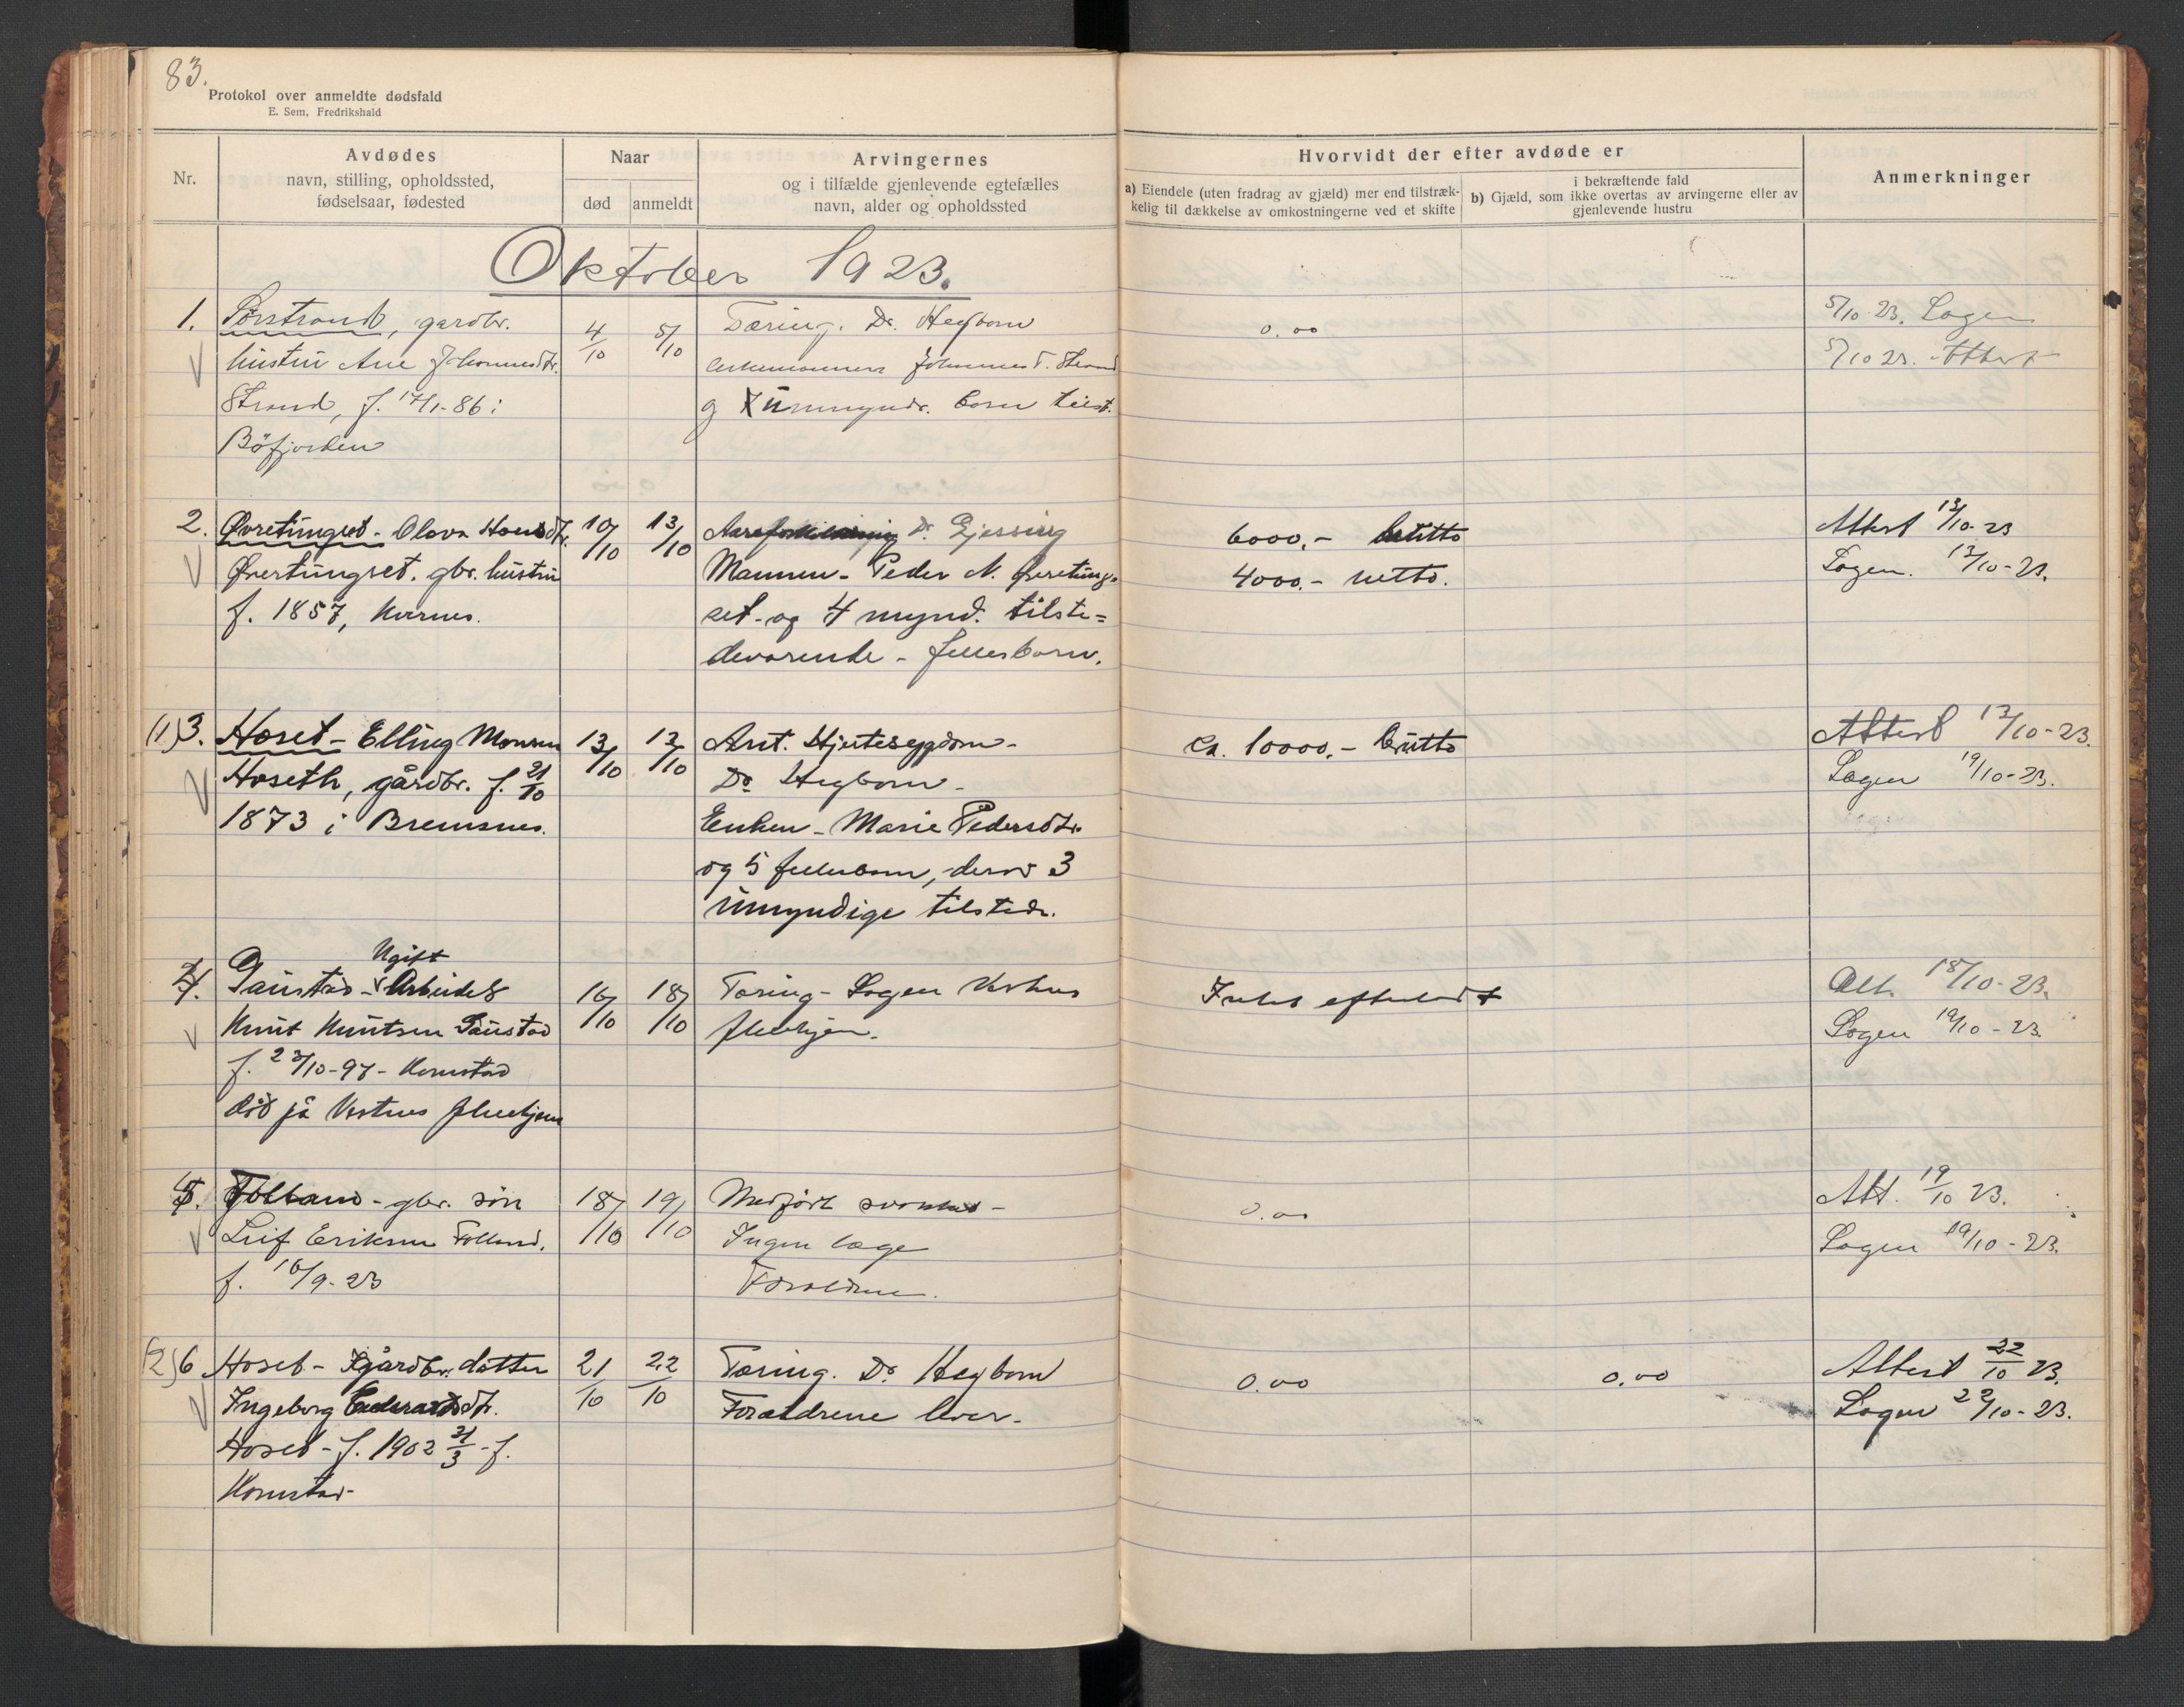 83.
Protokol over anmeldte dødsfald
E. Sem, Fredrikshald
Nr.
Avdødes
navn, stilling, opholdssted,
fødselsaar, fødested
Naar
død
anmeldt
Arvingernes
og i tilfælde gjenlevende egtefælles
navn, alder og opholdssted
Hvorvidt der efter avdøde er
a) Eiendele (uten fradrag av gjæld) mer end tilstræk-
kelig til dækkelse av omkostningerne ved et skifte
i bekræftende fald
b) Gjæld, som ikke overtas av arvingerne eller av
gjenlevende hustru
Anmerkninger
Oktober 1923.
1. gardbr.
hustru Ane Johannesdtr.
Strand, f. 17/1-86 i
Bøfjorden
4/10
5/10
Tæring. Dr. Hegbom
Johannes T. Strand
og umyndr. born tilst.
0.00
5/10 23. Lagen
5/10 23. Attest
2. Øvretungset - Olava Hansdtr.
Øvertungset. gbr. hustru
f. 1857, Kvernes.
10/10
13/10
Dr. Gjessing
Mannen - Peder N. Øvretung-
set - og 4 mynd. tilste=
deværende - fellesborn.
6000,- brutto
4000.- netto.
Attest 13/10-23
Lagen. 13/10-23.
(1) 3. Hoset - Elling Monsen
Hoseth, gårdbr. f. 21/10
1873 i Bremsnes.
13/10
13/10
Ant. Hjertesygdom -
Dr. Hegbom -
Enken - Marie Pedersdtr.
og 5 fellesborn, derav 3
umyndige tilstede.
ca. 10000,- brutto
Attest 13/10-23.
Lagen 19/10-23.
4. Ugift
Gaustad - Arbeider
Knut Knutsen Gaustad
f. 23/10-97 - Kornstad
död på Vestnes pleiehjem
16/10
18/10
Tæring - Lagen
pleiehjem.
Intet efterladt
Att. 18/10-23.
Lagen 19/10-23.
5. Folland - gbr. søn
Leif Eriksen Folland.
f. 16/9-23
18/10
19/10
Medført svakhet -
Ingen læge
Forældrene.
0.00
Att. 19/10 23.
Lagen 19/10-23.
(2) 6 Hoset - gårdbr. datter
Ingeborg
Hoset - f. 1902 21/3 - f.
Kornstad -
21/10
22/10
Tæring. Dr. Hegbom
Forældrene lever.
0.00
0.00
Attest 22/10 23.
Lagen 22/10-23.